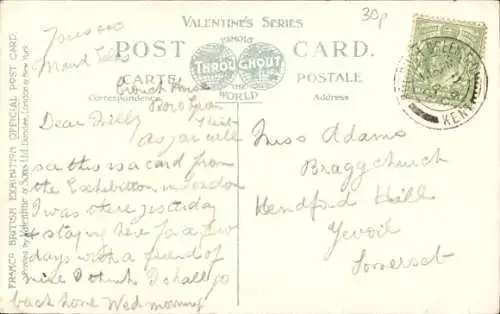 VALENTINE'S SERIES
30p
POST CARD.
FAMOUS
THROUGHOUT
THE
WORLD
CARTE POSTALE
Correspondence
Address
FRANCO BRITISH EXHIBITION OFFICIAL POST CARD.
Valentine & Sons Ltd. Dundee, London & New York.
KENT
Maud
Dear
As you will
see this is a card from
the Exhibition in London
I was there yesterday
& staying here for a few
days with a friend of
mine I think I shall go
back home Wed morning
Miss Adams
Braggchurch
Hendford Hill
Yeovil
Somerset